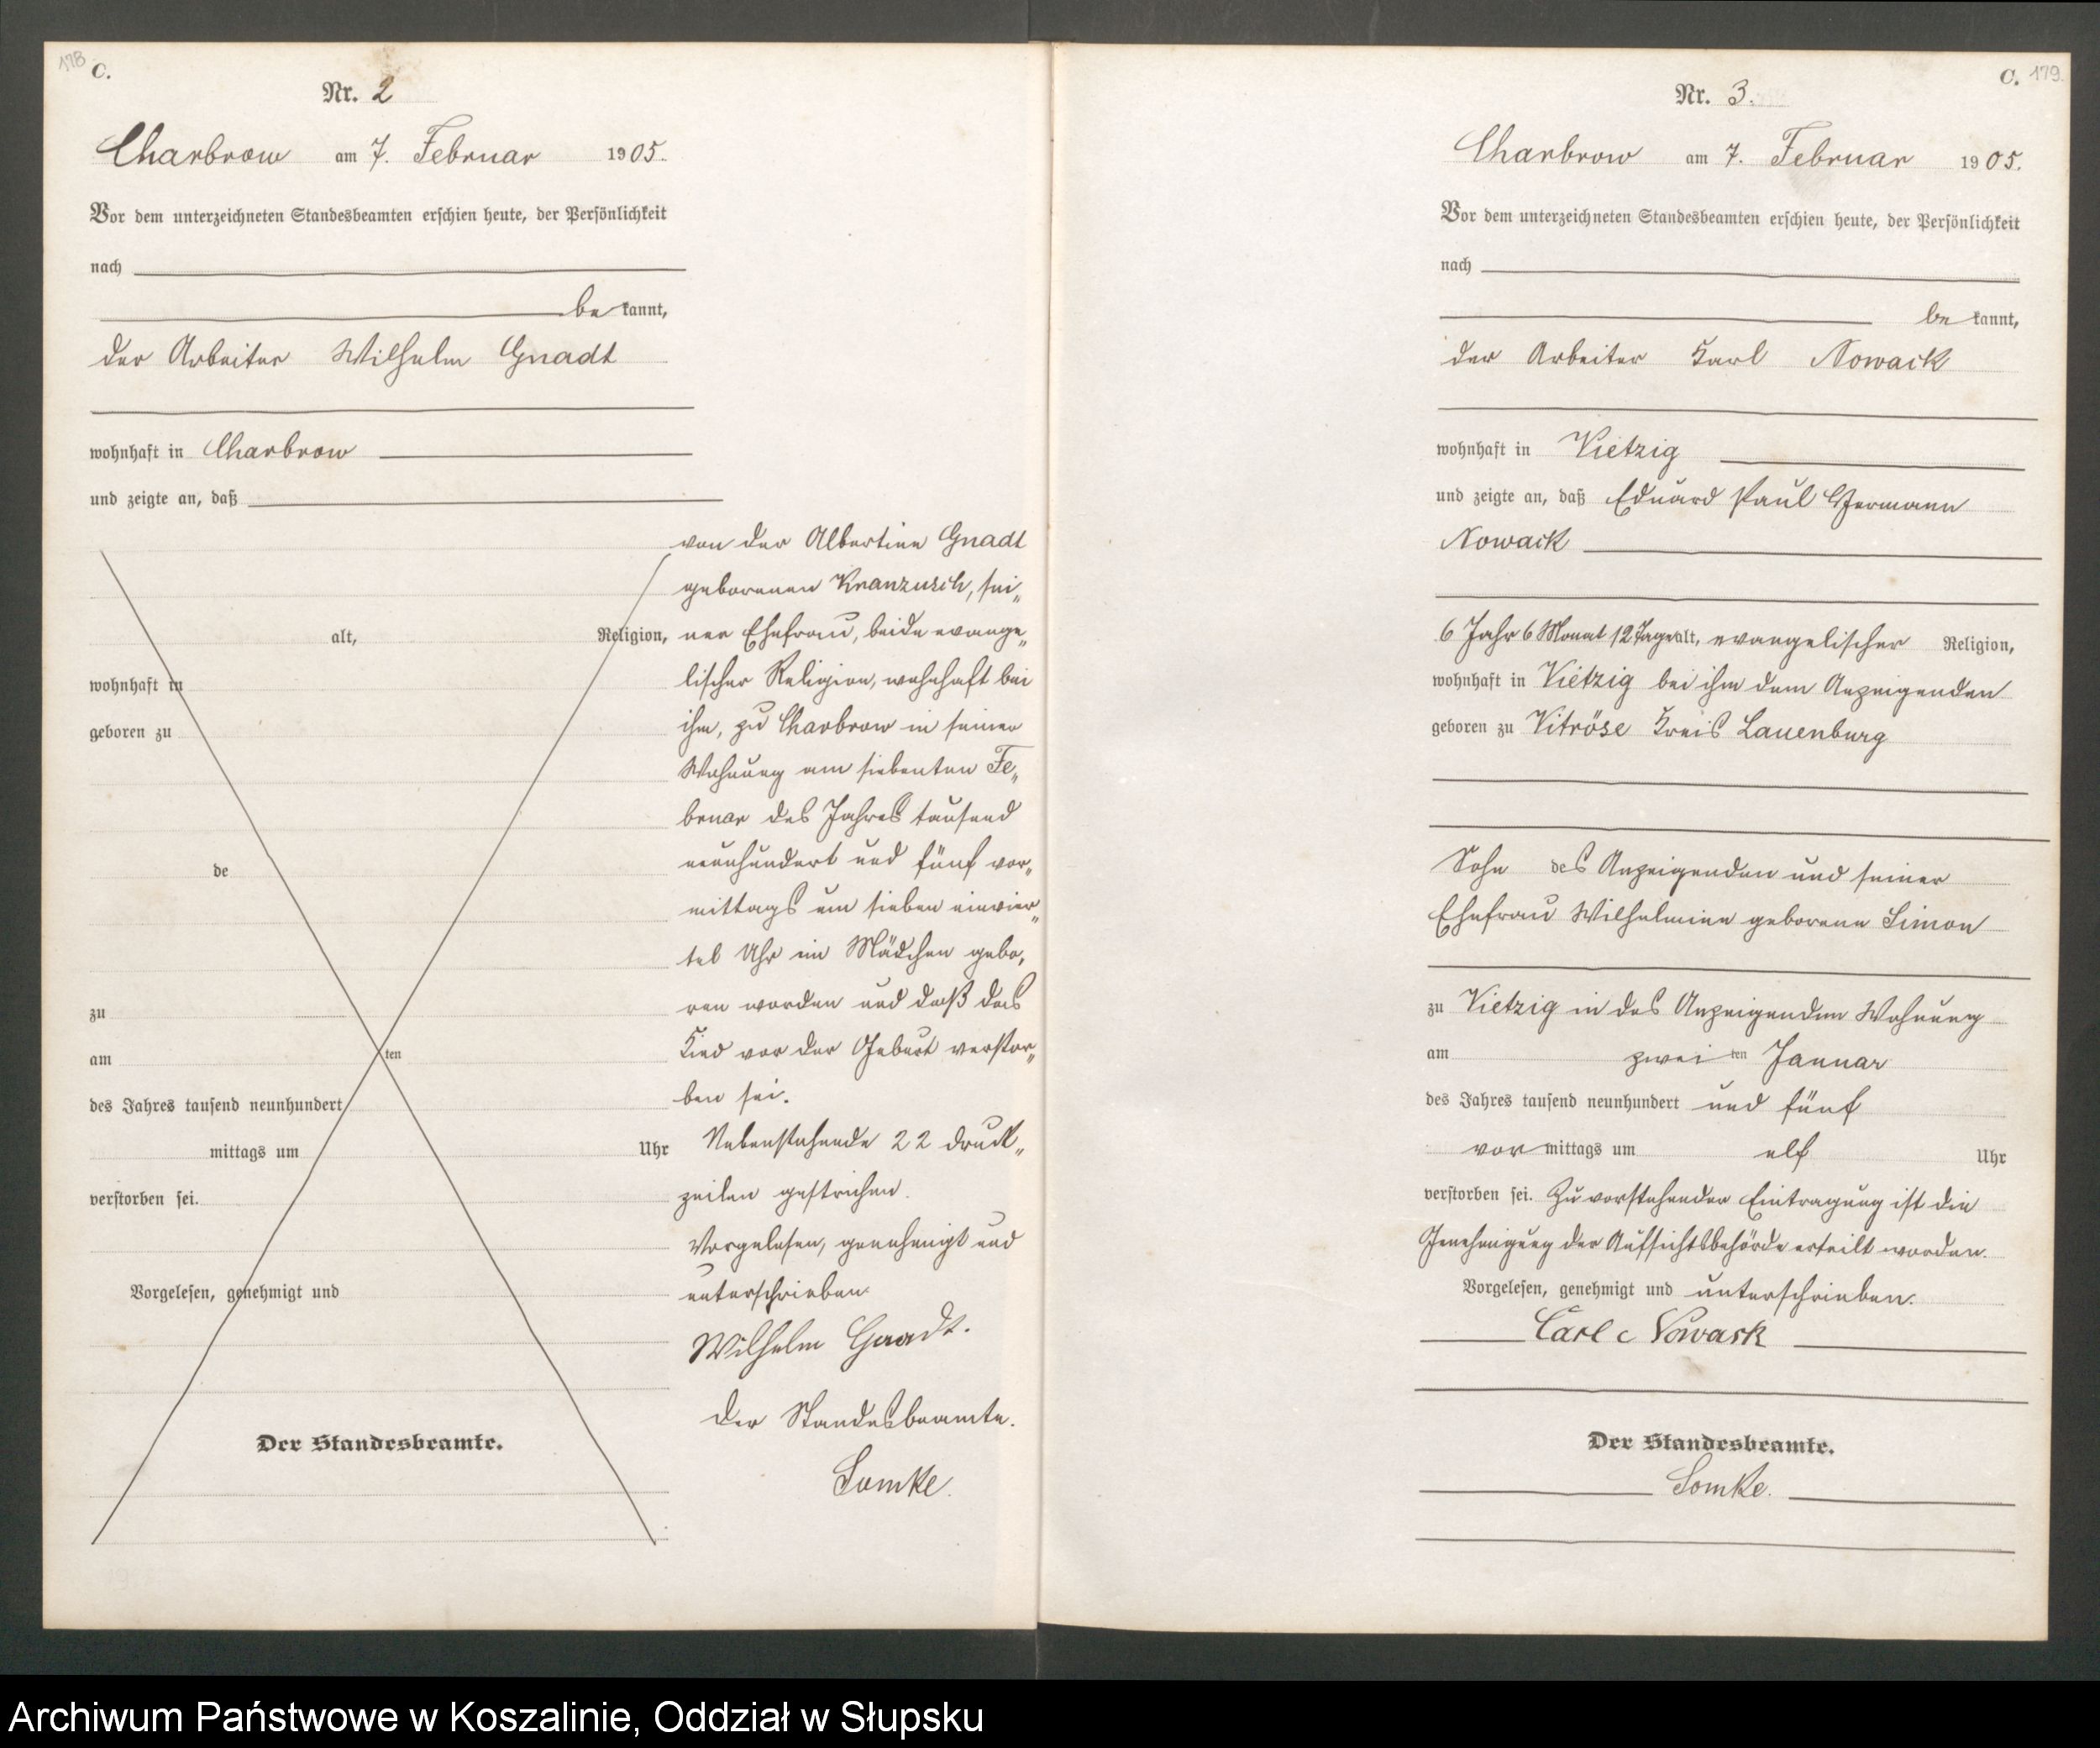 178
C.
Nr. 2
Charbrow am 7. Februar 1905.
Vor dem unterzeichneten Standesbeamten erschien heute, der Persönlichkeit
nach
be kannt,
der Arbeiter Wilhelm Gnadt
wohnhaft in Charbrow
und zeigte an, daß
von der Albertine Gnadt
geborenen Kranzusch, sei„
alt, Religion, ner Ehefrau, beide evange„
wohnhaft in lischer Religion, wohnhaft bei
geboren zu ihm, zu Charbrow in seiner
Wohnung am siebenten Fe„
bruar des Jahres tausend
de neunhundert und fünf vor„
mittags um sieben einvier„
tel Uhr ein Mädchen gebo„
zu ren worden und daß das
am ten Kind vor der Geburt verstor„
des Jahres tausend neunhundert ben sei.
mittags um Uhr Nebenstehende 22 Druck„
verstorben sei. zeilen gestrichen.
Vorgelesen, genehmigt und
Vorgelesen, genehmigt und unterschrieben.
Wilhelm Gnadt.
Der Standesbeamte.
Der Standesbeamte.
Somke.
C. 179.
Nr. 3.
Charbrow am 7. Februar 1905.
Vor dem unterzeichneten Standesbeamten erschien heute, der Persönlichkeit
nach
be kannt,
der Arbeiter Karl Nowack
wohnhaft in Vietzig
und zeigte an, daß Eduard Paul Hermann
Nowack
6 Jahr 6 Monat 12 Tage alt, evangelischer Religion,
wohnhaft in Vietzig bei ihm dem Anzeigenden
geboren zu Vitröse Kreis Lauenburg
Sohn des Anzeigenden und seiner
Ehefrau Wilhelmine geborene Simon
zu Vietzig in des Anzeigenden Wohnung
am zwei ten Januar
des Jahres tausend neunhundert und fünf
vor mittags um elf Uhr
verstorben sei. Zu vorstehender Eintragung ist die
Genehmigung der Aufsichtsbehörde erteilt worden.
Vorgelesen, genehmigt und unterschrieben.
Carl Nowack
Der Standesbeamte.
Somke.
Archiwum Państwowe w Koszalinie, Oddział w Słupsku